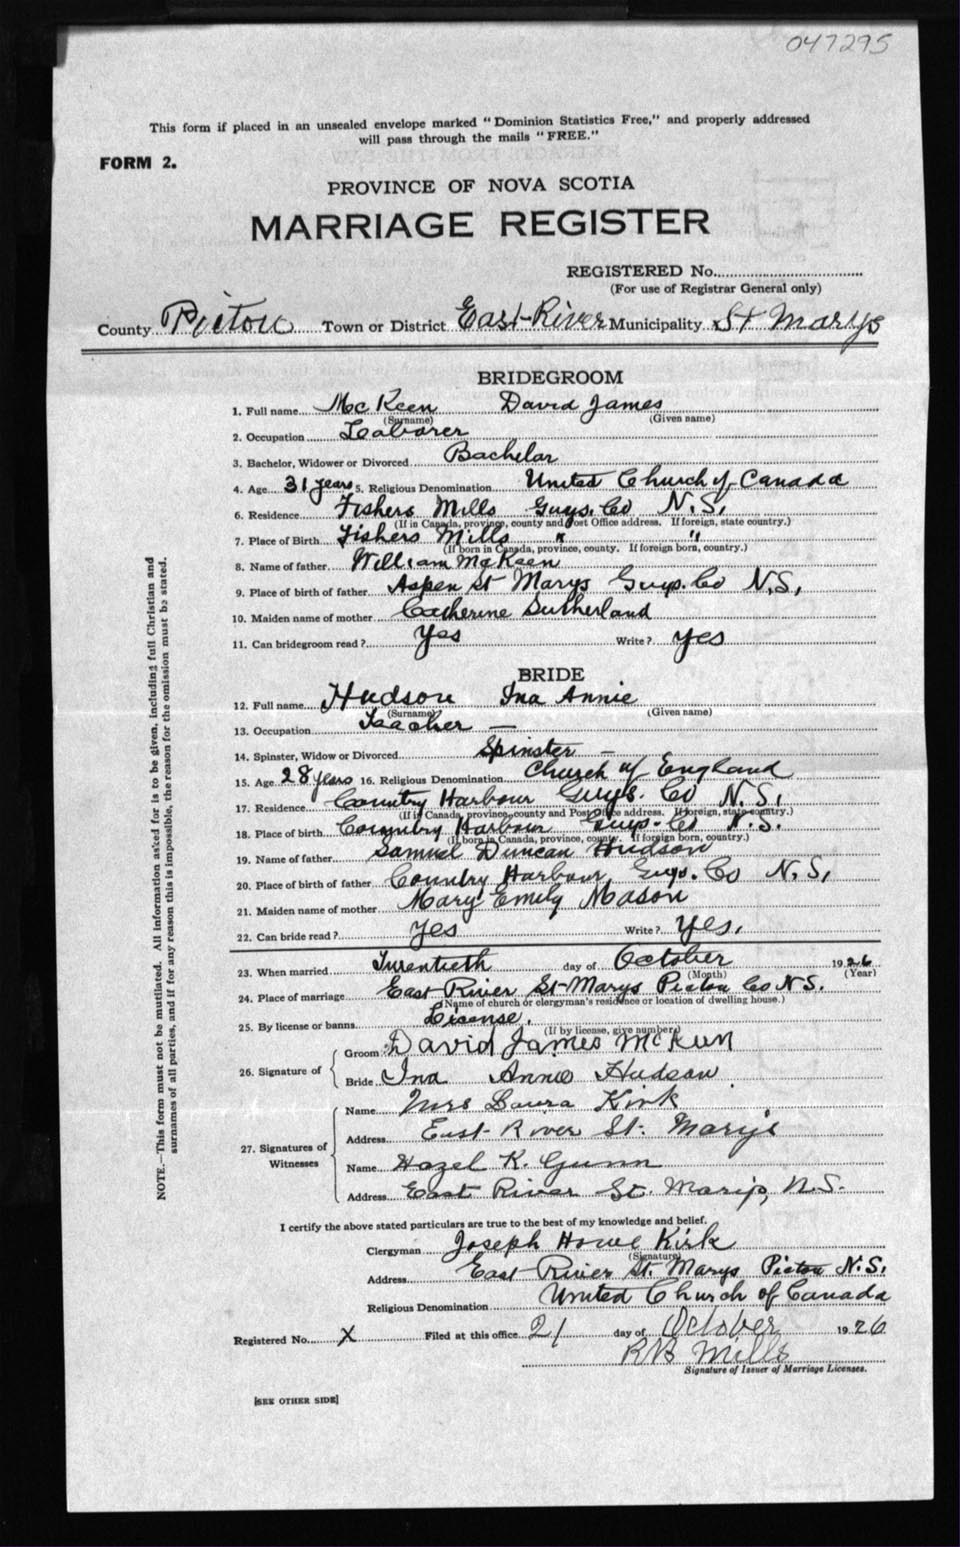 047295
This form if placed in an unsealed envelope marked "Dominion Statistics Free," and properly addressed
will pass through the mails "FREE."
FORM 2.
PROVINCE OF NOVA SCOTIA
MARRIAGE REGISTER
REGISTERED No.
(For use of Registrar General only)
County Pictou Town or District East River Municipality St Marys
BRIDEGROOM
1. Full name McKeen David James
(Surname) (Given name)
2. Occupation Laborer
3. Bachelor, Widower or Divorced Bachelor
4. Age 31 years 5. Religious Denomination United Church of Canada
6. Residence Fishers Mills Guys. Co N.S.
(If in Canada, province, county and Post Office address. If foreign, state country.)
7. Place of Birth Fishers Mills " "
(If born in Canada, province, county. If foreign born, country.)
8. Name of father William McKeen
9. Place of birth of father Aspen St Marys Guys. Co N.S.
10. Maiden name of mother Catherine Sutherland
11. Can bridegroom read? Yes Write? yes
BRIDE
12. Full name Hudson Ina Annie
(Surname) (Given name)
13. Occupation Teacher —
14. Spinster, Widow or Divorced Spinster —
15. Age 28 years 16. Religious Denomination Church of England
17. Residence Country Harbour Guys. Co N.S.
(If in Canada, province, county and Post Office address. If foreign, state country.)
18. Place of birth Country Harbour Guys. Co N.S.
(If born in Canada, province, county. If foreign born, country.)
19. Name of father Samuel Duncan Hudson
20. Place of birth of father Country Harbour, Guys. Co N.S,
21. Maiden name of mother Mary Emily Mason
22. Can bride read? Yes Write? Yes.
23. When married Twentieth day of October 1926
(Month) (Year)
24. Place of marriage East River St Marys Pictou Co N.S.
(Name of church or clergyman's residence or location of dwelling house.)
25. By license or banns License.
(If by license, give number)
26. Signature of Groom David James McKeen
Bride Ina Annie Hudson
27. Signatures of Witnesses
Name Mrs Laura Kirk
Address East River St. Mary's
Name Hazel K. Gunn
Address East River St. Marys, N.S.
I certify the above stated particulars are true to the best of my knowledge and belief.
Clergyman Joseph Howe Kirk
(Signature)
Address East River St. Marys Pictou N.S.
Religious Denomination United Church of Canada
Registered No. X Filed at this office 21 day of October 1926
RB Mills
Signature of Issuer of Marriage Licenses.
[SEE OTHER SIDE]
NOTE.—This form must not be mutilated. All information asked for is to be given, including full Christian and
surnames of all parties, and if for any reason this is impossible, the reason for the omission must be stated.